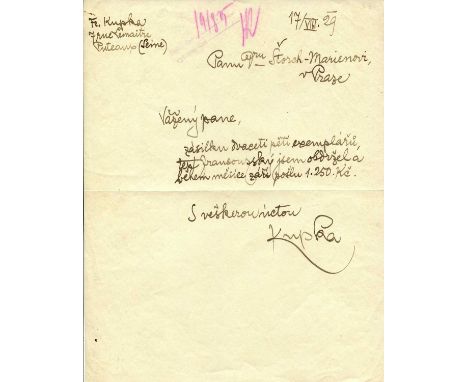 Fr. Kupka
7 rue Lemaître
Puteaux (Seine)
19185
17/VIII. 29
Panu Štorch-Marienovi,
v Praze
Vážený pane,
zásilku dvaceti pěti exemplářů,
jsem obdržel a
během měsíce září pošlu 1.250 Kč.
S veškerou úctou
Kupka